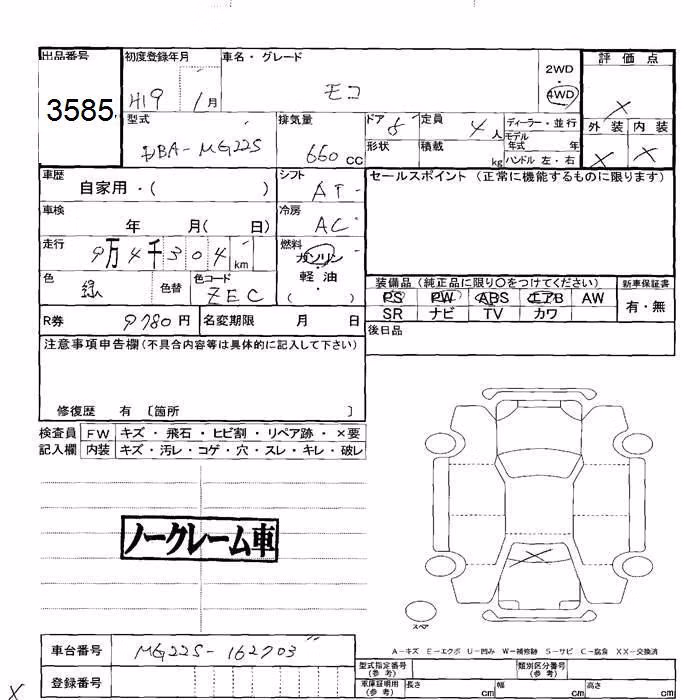 出品番号 初度登録年月 車名・グレード 評価点
3585 H19 1月 モコ 2WD 4WD X
型式 排気量 ドア 5 定員 4人 ディーラー・並行 外装 内装
DBA-MG22S 660 CC 形状 積載 kg モデル年式 年 X X
ハンドル 左・右
車歴 シフト セールスポイント (正常に機能するものに限ります)
自家用・( ) AT
車検 冷房
年 月( 日) AC
走行 燃料
9万4千304 km ガソリン・軽油 ( )
色 色替 色コード 装備品(純正品に限り○をつけてください) 新車保証書
緑 ZEC PS PW ABS エアB AW 有・無
SR ナビ TV カワ
R券 9780円 名変期限 月 日 後日品
注意事項申告欄(不具合内容等は具体的に記入して下さい)
修復歴 有 〔箇所 〕
検査員 FW キズ・飛石・ヒビ割・リペア跡・×要
記入欄 内装 キズ・汚レ・コゲ・穴・スレ・キレ・破レ
ノークレーム車
X
スペア
A-キズ E-エクボ U-凹み W-補修跡 S-サビ C-腐食 XX-交換済
車台番号 MG22S-162703
型式指定番号(参考) 類別区分番号(参考)
登録番号 車庫証明用(参考) 長さ cm 幅 cm 高さ cm
X